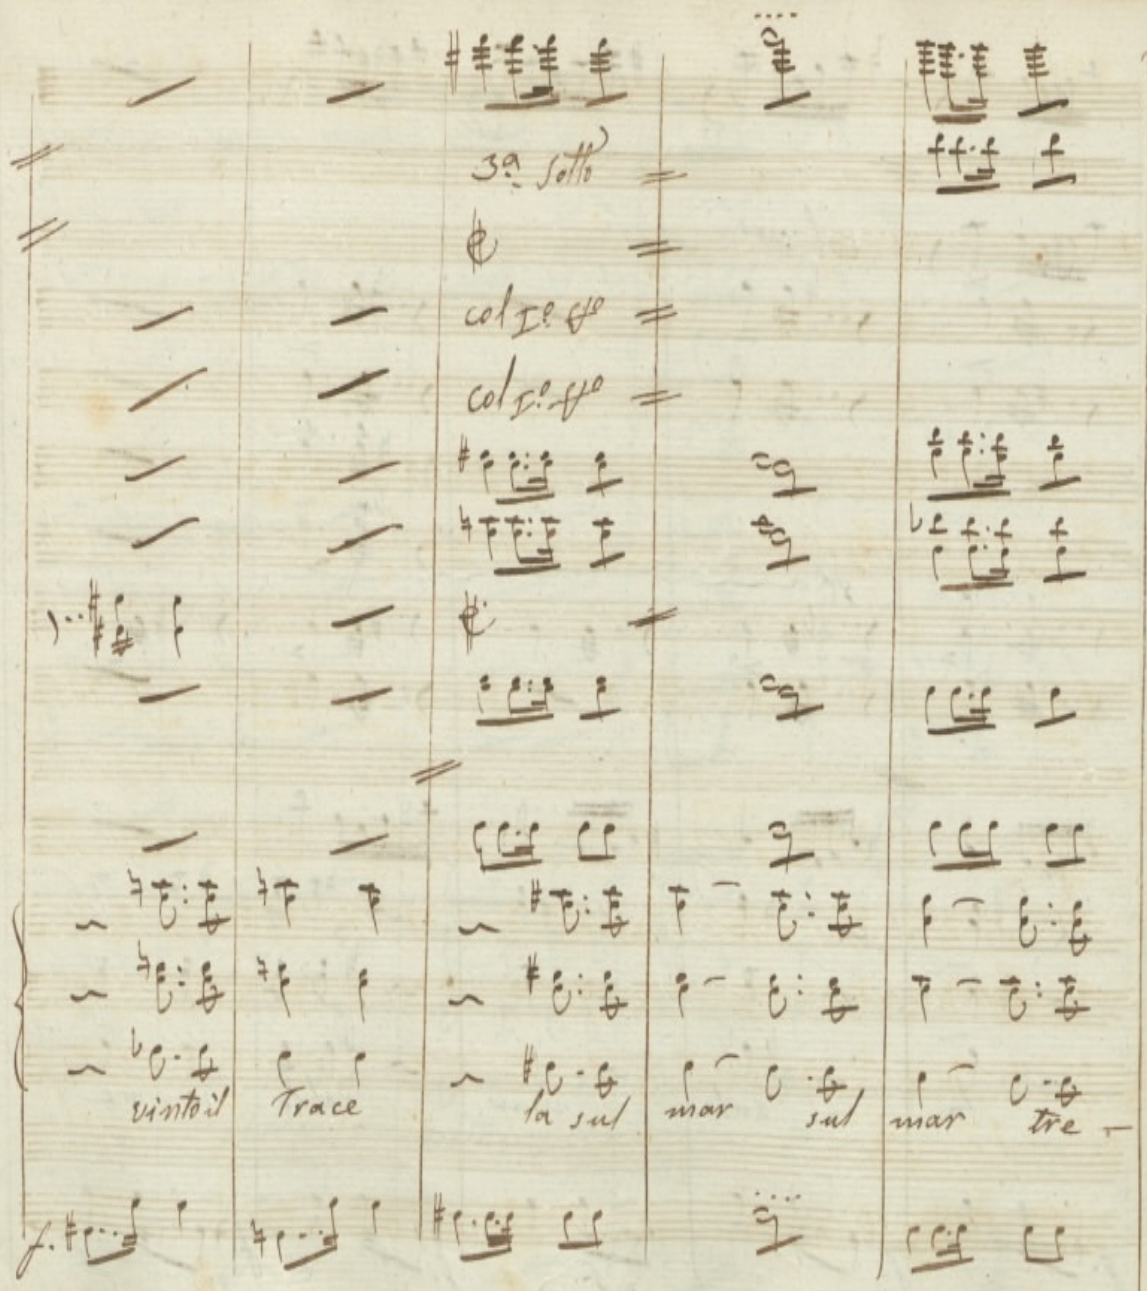 3ª sotto
col Iº
col Iº
vinto il Trace la sul mar sul mar tre -
f.